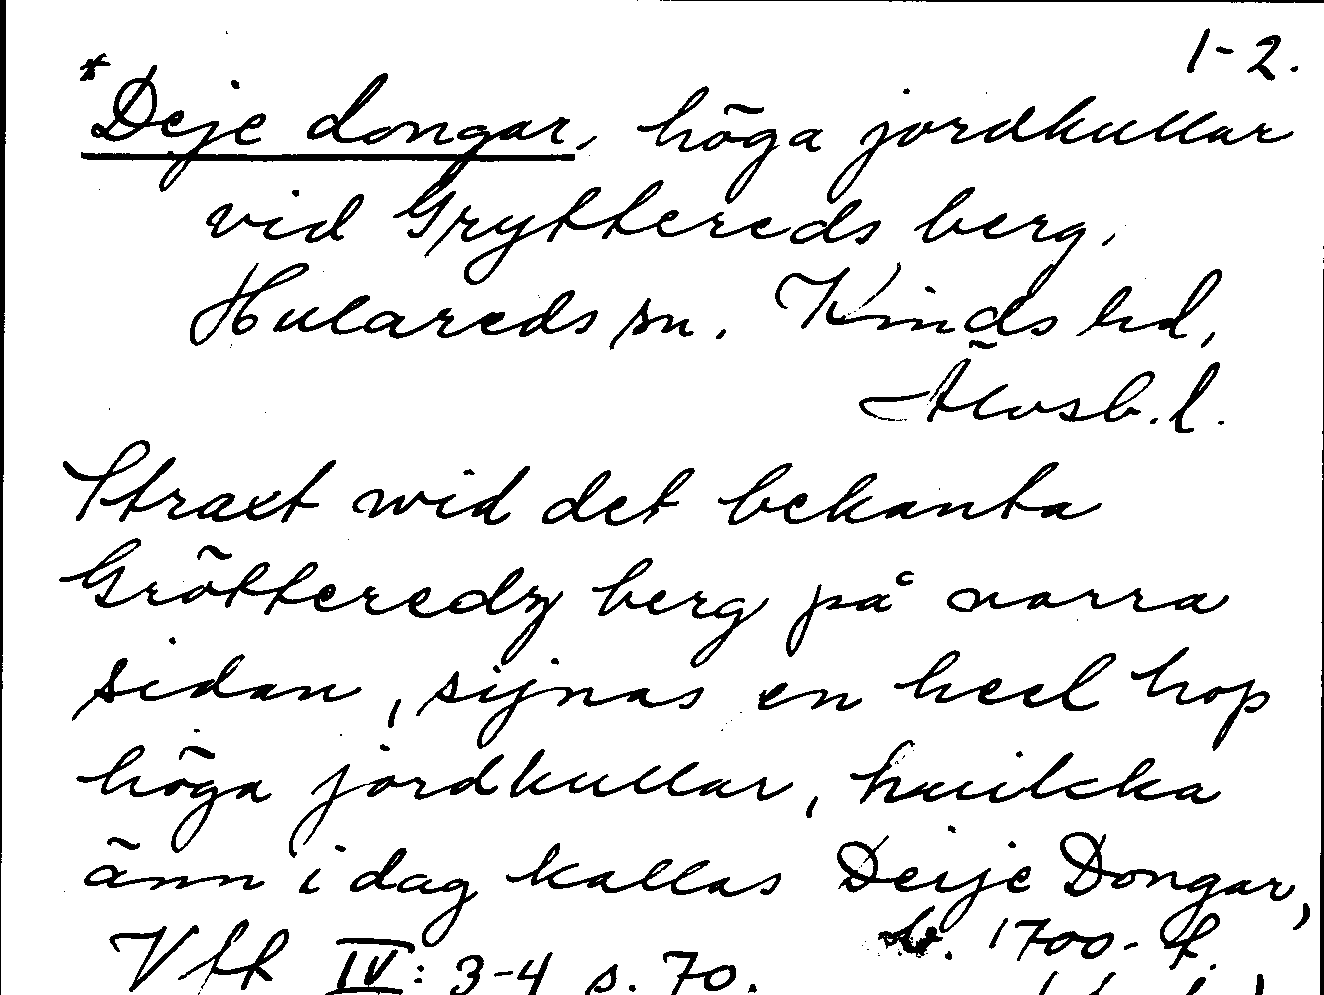 1-2.
*Deje dongar, höga jordkullar
vid Gryttereds berg,
Hulareds sn. Kinds hd,
Älvsb. l.
Straxt wid det bekanta
Grötteredz berg på norra
sidan, sijnas en heel hop
höga jordkullar, huilcka
änn i dag kallas Deije Dongar,
Vfk IV: 3-4 s. 70. 1700-t.